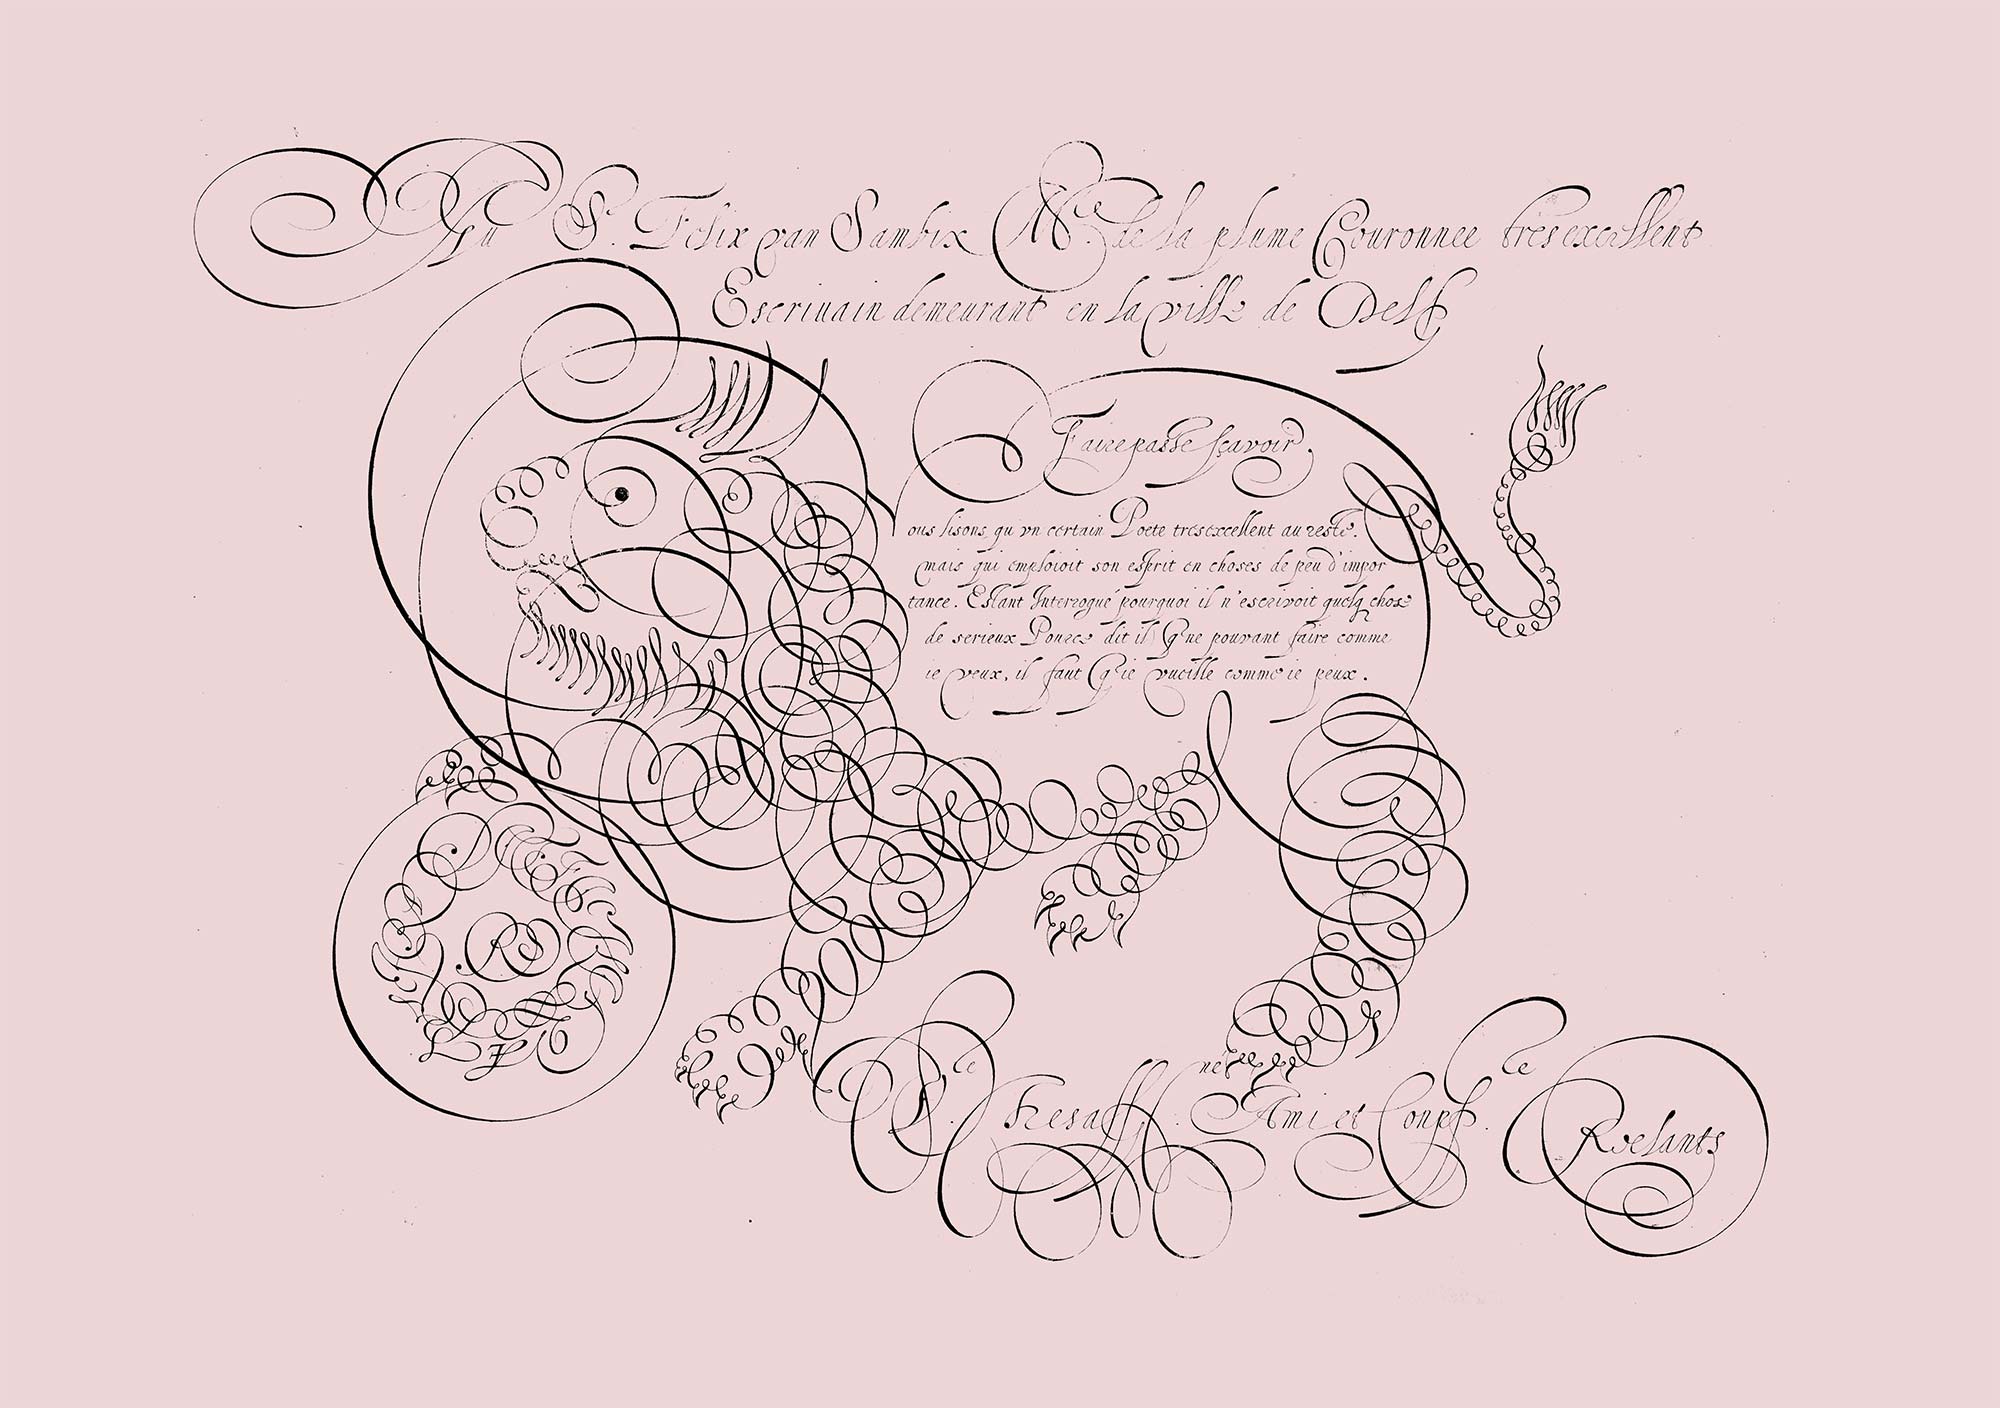 Au S. Felix van Sambix Mre. de la plume Couronnee tresexcellent
Escrivain demeurant en la ville de Delf
Faire passe sçavoir.
ous lisons qu vn certain Poete tresexcellent au reste.
mais qui emploioit son esprit en choses de peu d'impor
tance. Estant Interrogué pourquoi il n'escrivoit quelq chose
de serieux Pource dit il Q ne pouvant faire comme
ie veux, il faut Q ie vueille comme ie peux.
RS
ce né ce
Tresaff. Ami et Conpf. Roelants